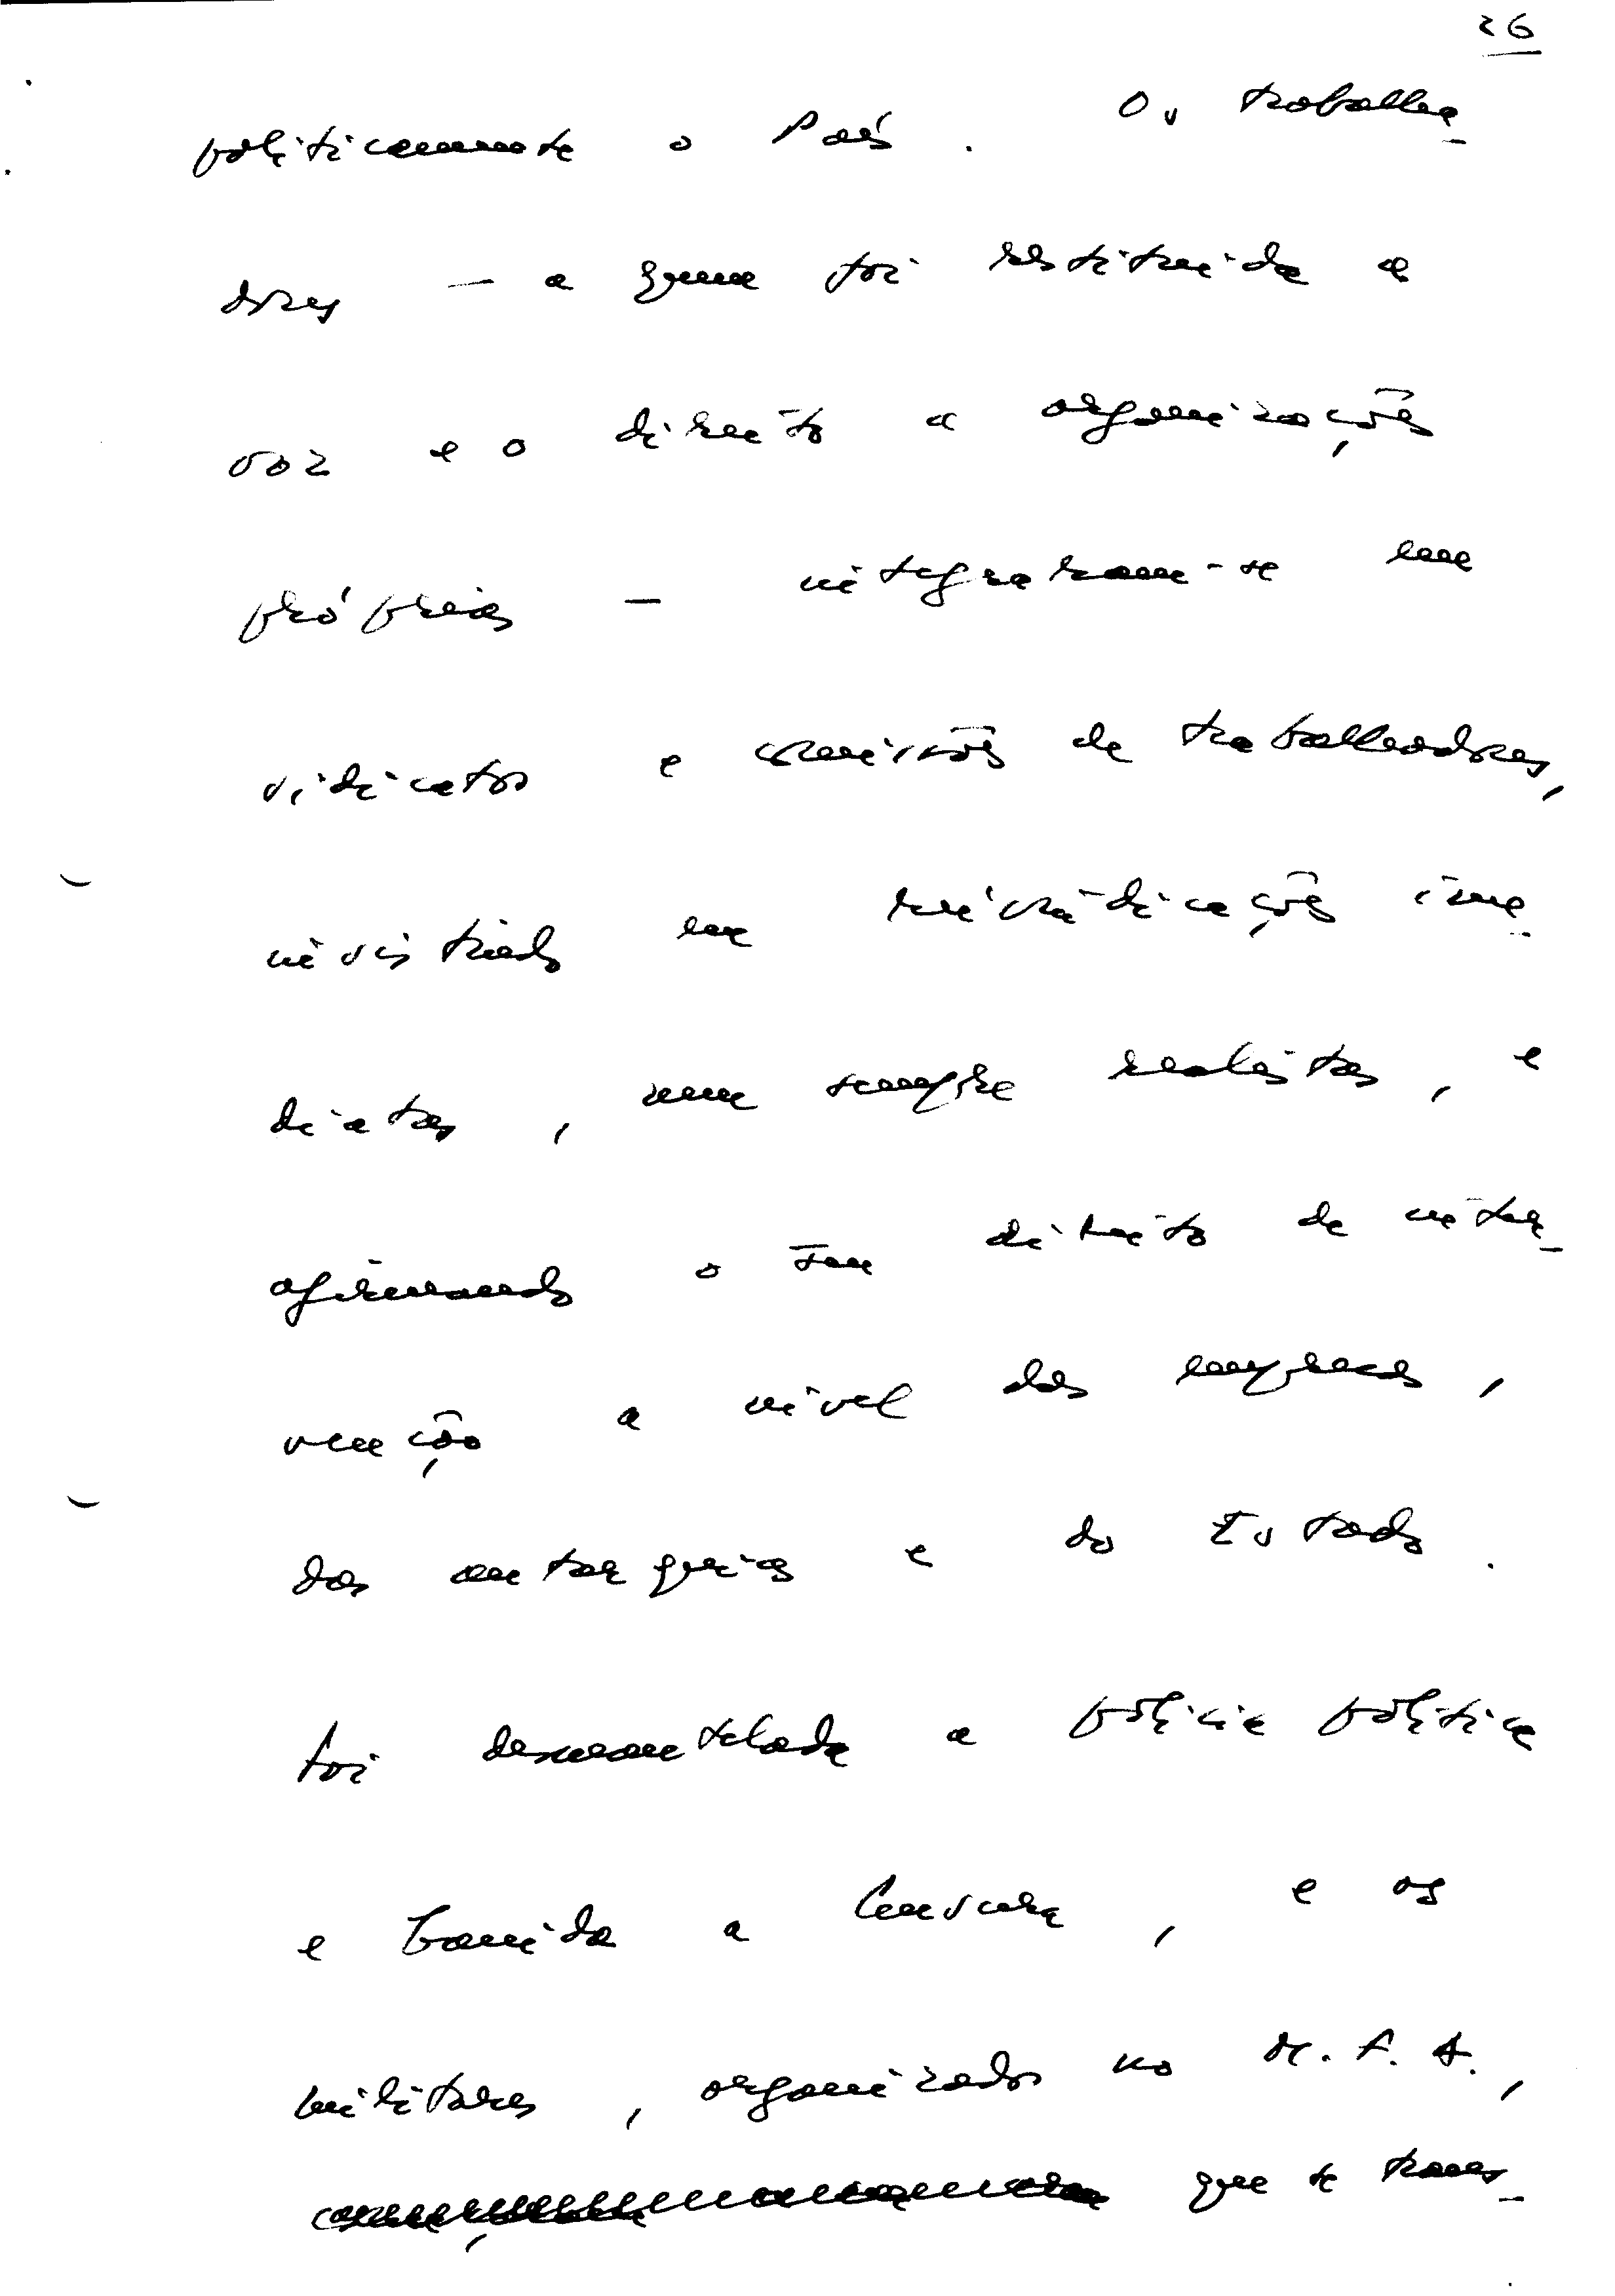 26
politicamente o País. Os trabalha-
dores — a quem foi restituida a
voz e o direito a organizações
próprias — integraram-se em
sindicatos e comissões de trabalhadores,
insistindo em reivindicações ime-
diatas, nem sempre realistas, e
afirmando o seu direito de inter-
venção a nível das empresas,
das autarquias e do Estado.
Foi desmantelada a polícia política
e banida a Censura, e os
militares, organizados no M.F.A.,
que se trans-